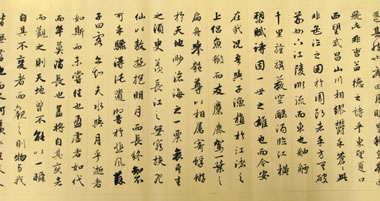 飛此非孟德之詩乎東望夏口
西望武昌山川相繆鬱乎蒼此
非孟德之困於周郎者乎方其破
荊州下江陵順流而東也舳艫
千里旌旗蔽空釃酒臨江橫
槊賦詩固一世之雄也而今安
在哉況吾與子漁樵於江渚之
上侶魚蝦而友麋鹿駕一葉之
扁舟舉匏尊以相屬寄蜉蝣
於天地渺滄海之一粟哀吾生
之須臾羨長江之無窮挾飛
仙以遨遊抱明月而長終知不
可乎驟得託遺響於悲風蘇
子曰客亦知夫水與月乎逝者
如斯而未嘗往也盈虛者如代
而卒莫消長也蓋將自其變者
而觀之則天地曾不能以一瞬
自其不變者而觀之則物與我